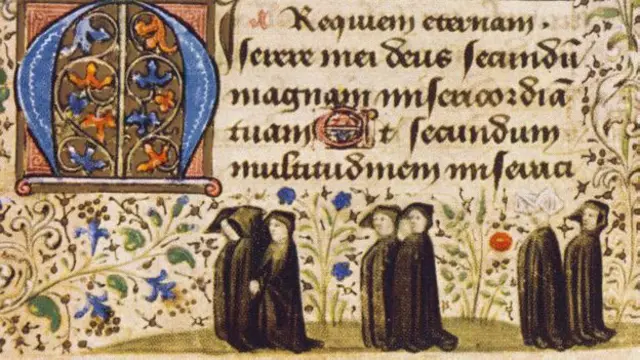 Requiem eternam .
Miserere mei deus secundū
magnam misericordiā
tuam Et secundum
multitudinem miseraci